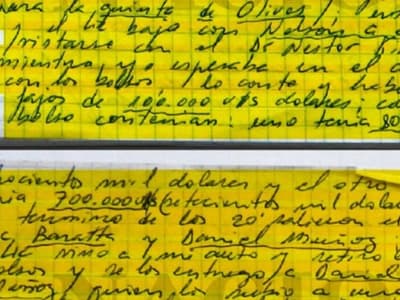 para la quinta de Olivos / Pers
y el Lic bajo con Nelson a
tristarse con el Dr Nestor
mientras yo esperaba en el a
con los bolsos lo conte y habi
fajos de 100.000 U$S dolares; ca
bolso contenian: uno tenia 80
hocientos mil dolares y el otro
ia 700.000 U$S (setecientos mil dola
termino de los 20' salieron el
Lic Baratta y Daniel Muñoz
Lic vino a mi auto y retiro l
olsos y se los entrego a Daniel
uñoz, quien los subio a un